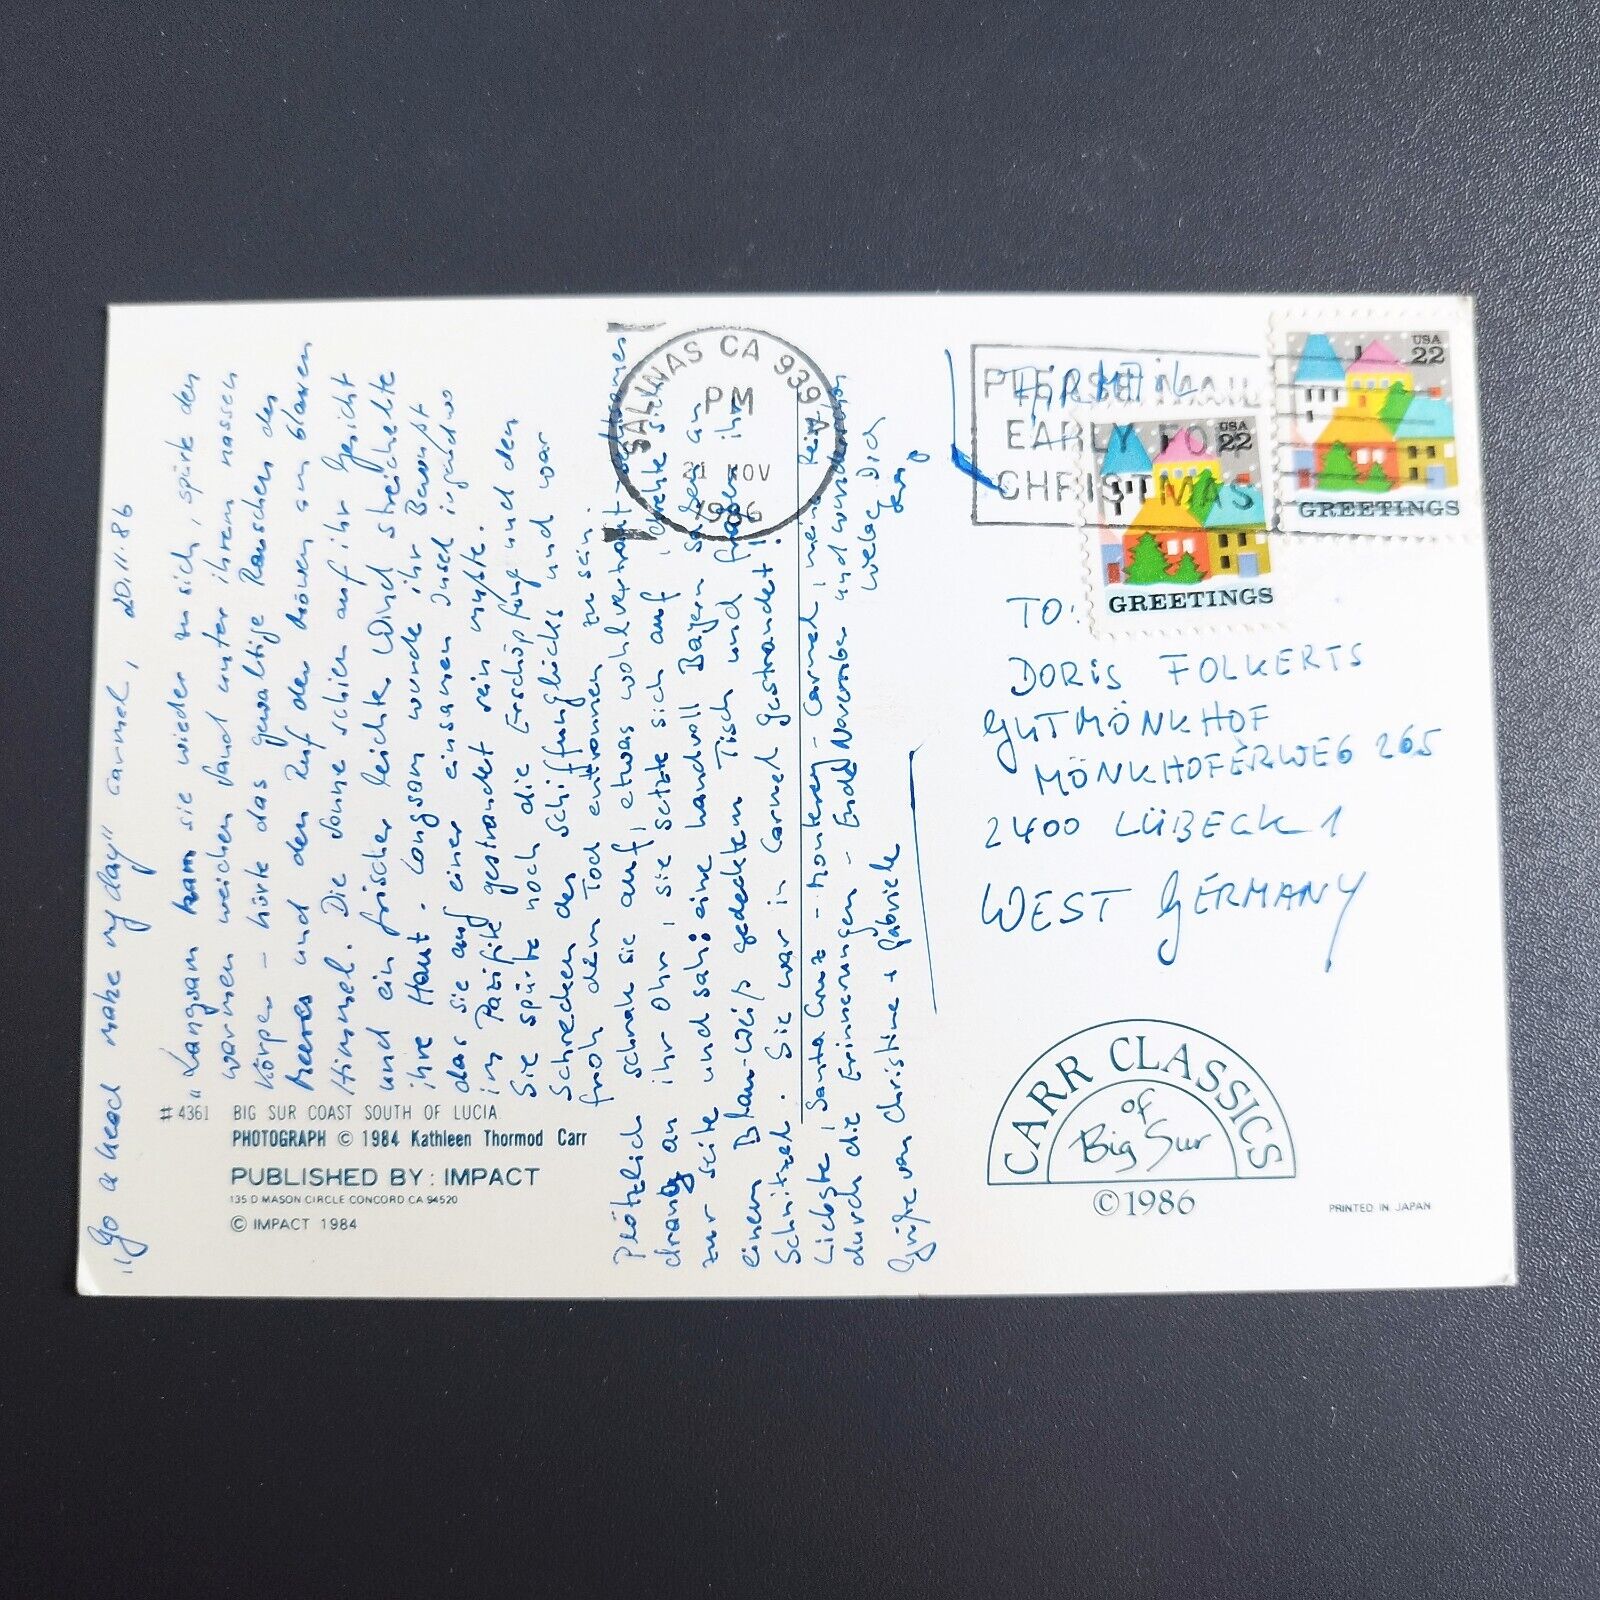 "Go ahead make my day" Carmel, 20.11.86
"Langsam kam sie wieder zu sich, spürte den
warmen weichen Sand unter ihrem nassen
Körper – hörte das gewaltige Rauschen des
Meeres und den Ruf der Möwen am blauen
Himmel. Die Sonne schien auf ihr Gesicht
und ein frischer leichter Wind streichelte
ihre Haut. Langsam wurde ihr Bewußt
das sie auf einer einsamen Insel irgendwo
im Pazifik gestrandet sein mußte.
Sie spürte noch die Erschöpfung und den
Schrecken des Schiffunglücks und war
froh dem Tod entronnen zu sein.
Plötzlich schrak sie auf, etwas wohlvertraut
drang an ihr Ohr, sie setzte sich auf, drehte sich
zur Seite und sah: eine handvoll Bayern saßen an
einem Blau-Weiß gedecktem Tisch und fraßen ihr
Schnitzel. Sie war in Carmel gestrandet!
Liebste, Santa Cruz – Monterey – Carmel, meine Reise
durch die Erinnerungen – Ende November und wunderschön
Grüße von Christine + Gabriele
SALINAS CA 939
PM
21 NOV
1986
PLEASE MAIL
EARLY FOR
CHRISTMAS
AIR MAIL
USA
22
GREETINGS
USA
22
GREETINGS
TO:
DORIS FOLKERTS
GUT MÖNKHOF
MÖNKHOFERWEG 265
2400 LÜBECK 1
WEST GERMANY
#4361 BIG SUR COAST SOUTH OF LUCIA
PHOTOGRAPH © 1984 Kathleen Thormod Carr
PUBLISHED BY: IMPACT
135 D MASON CIRCLE CONCORD CA 94520
© IMPACT 1984
CARR CLASSICS
of
Big Sur
©1986
PRINTED IN JAPAN